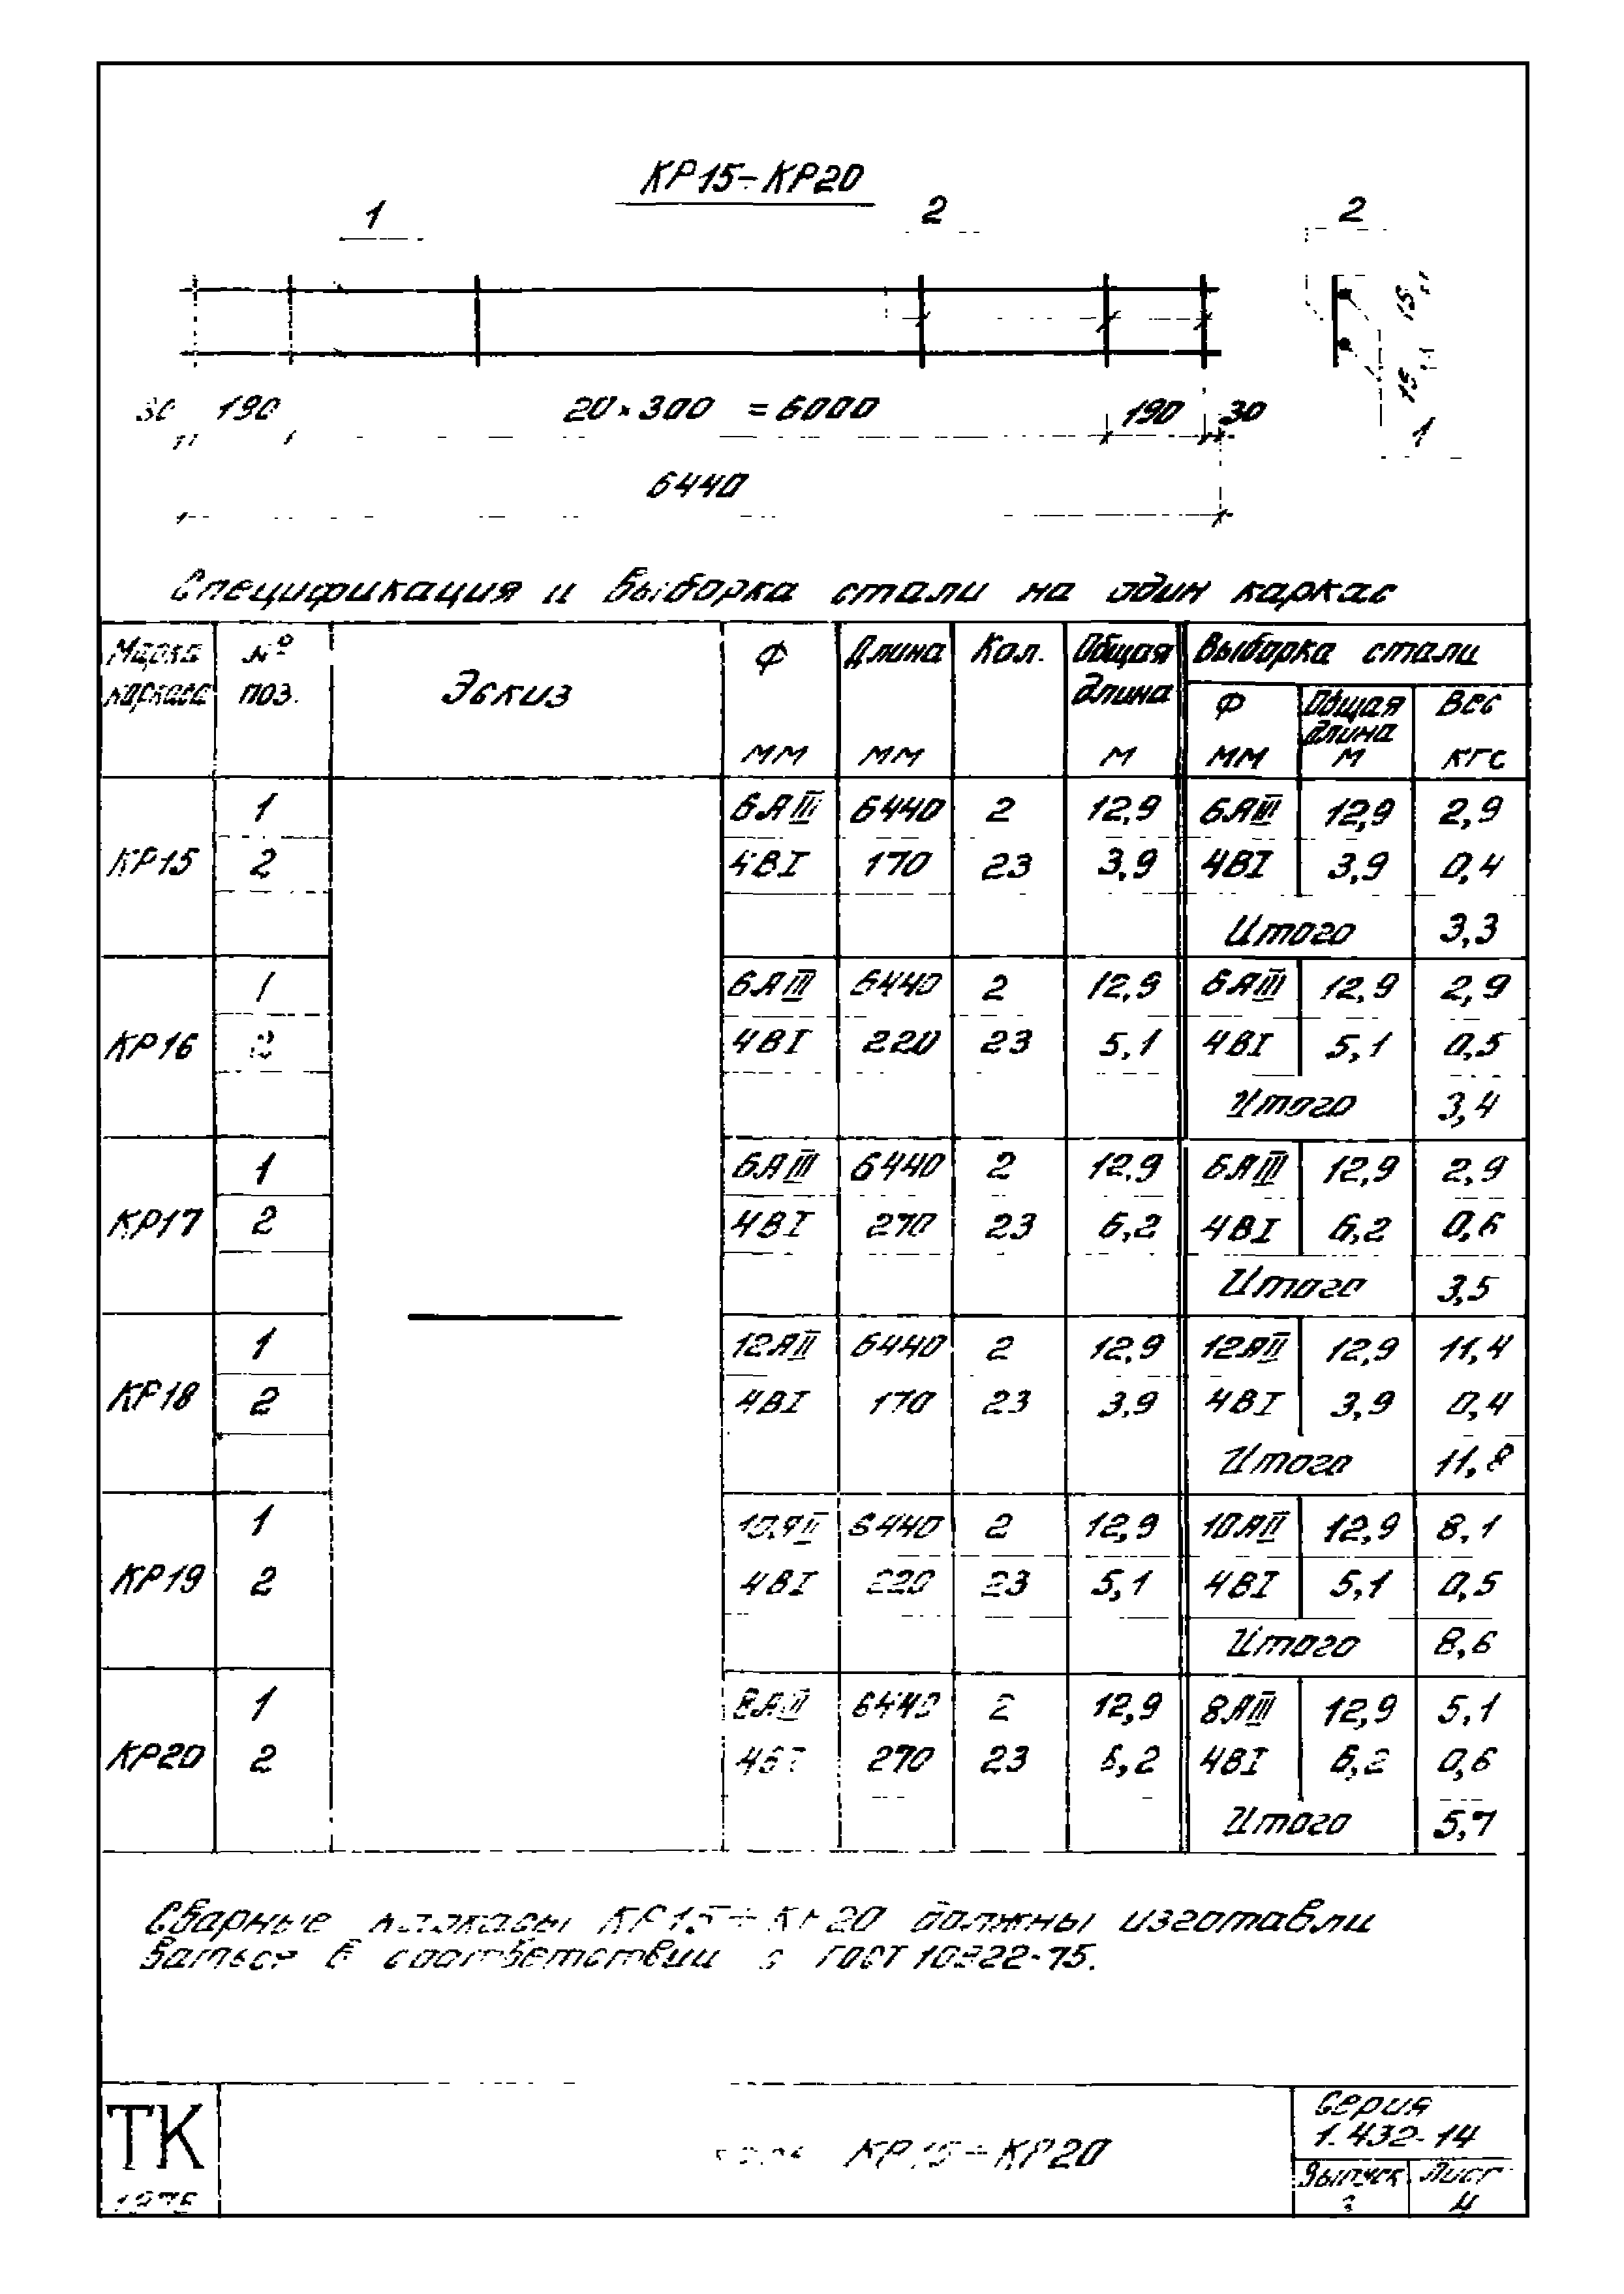 КР15÷КР20
1 2 2
15
15
30 190 20×300 =6000 190 30
1
6440
Спецификация и выборка стали на один каркас
Марка каркаса № поз. Эскиз Ф мм Длина мм Кол. Общая длина м Выборка стали
Ф мм Общая длина м Вес кгс
КР15 1 6АIII 6440 2 12,9 6АIII 12,9 2,9
2 4ВI 170 23 3,9 4ВI 3,9 0,4
Итого 3,3
КР16 1 6АIII 6440 2 12,9 6АIII 12,9 2,9
2 4ВI 220 23 5,1 4ВI 5,1 0,5
Итого 3,4
КР17 1 6АIII 6440 2 12,9 6АIII 12,9 2,9
2 4ВI 270 23 6,2 4ВI 6,2 0,6
Итого 3,5
КР18 1 12АII 6440 2 12,9 12АII 12,9 11,4
2 4ВI 170 23 3,9 4ВI 3,9 0,4
Итого 11,8
КР19 1 10АII 6440 2 12,9 10АII 12,9 8,1
2 4ВI 220 23 5,1 4ВI 5,1 0,5
Итого 8,6
КР20 1 6440 2 12,9 8АIII 12,9 5,1
2 270 23 6,2 4ВI 6,2 0,6
Итого 5,7
Сварные каркасы КР15÷КР20 должны изготавли
ваться в соответствии с ГОСТ 10922-75.
ТК КР15÷КР20 Серия
1.432-14
Выпуск Лист
4